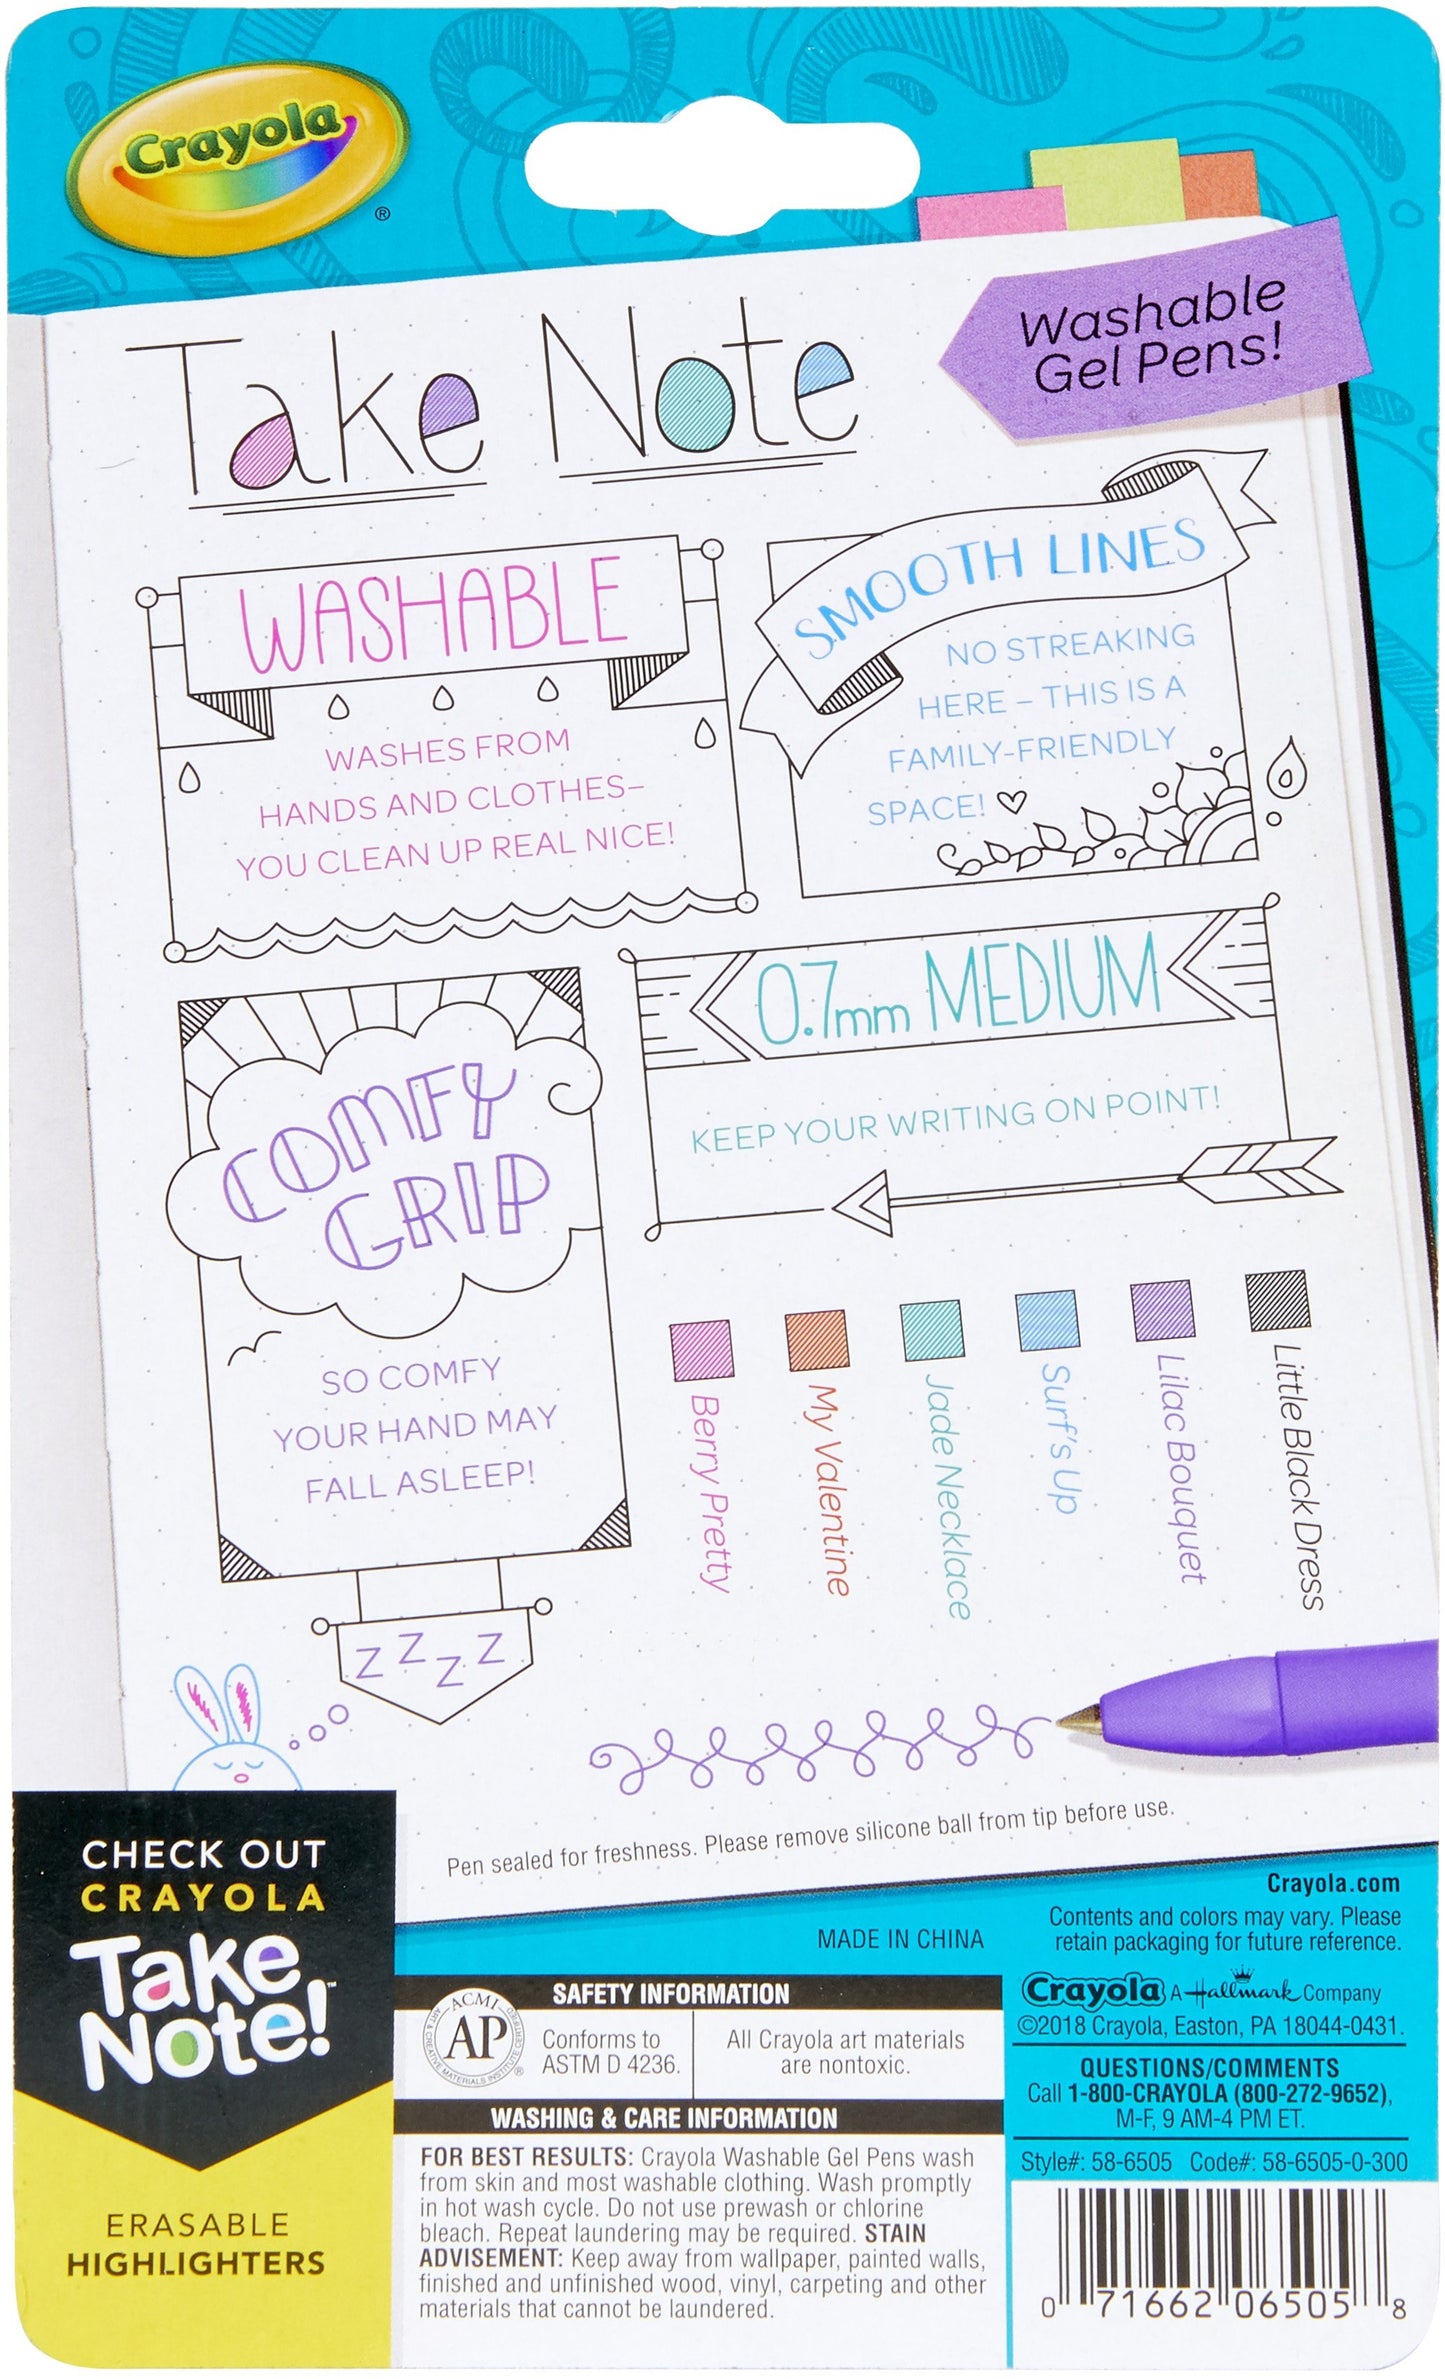 Crayola
®
Washable
Gel Pens!
Take Note
WASHABLE
WASHES FROM
HANDS AND CLOTHES–
YOU CLEAN UP REAL NICE!
SMOOTH LINES
NO STREAKING
HERE – THIS IS A
FAMILY-FRIENDLY
SPACE!
COMFY
GRIP
SO COMFY
YOUR HAND MAY
FALL ASLEEP!
Z Z Z Z
0.7mm MEDIUM
KEEP YOUR WRITING ON POINT!
Berry Pretty
My Valentine
Jade Necklace
Surf's Up
Lilac Bouquet
Little Black Dress
Pen sealed for freshness. Please remove silicone ball from tip before use.
CHECK OUT
CRAYOLA
Take
Note!™
ERASABLE
HIGHLIGHTERS
MADE IN CHINA
SAFETY INFORMATION
ACMI
AP
ART & CREATIVE MATERIALS INSTITUTE CERTIFIED
®
Conforms to
ASTM D 4236.
All Crayola art materials
are nontoxic.
WASHING & CARE INFORMATION
FOR BEST RESULTS: Crayola Washable Gel Pens wash
from skin and most washable clothing. Wash promptly
in hot wash cycle. Do not use prewash or chlorine
bleach. Repeat laundering may be required. STAIN
ADVISEMENT: Keep away from wallpaper, painted walls,
finished and unfinished wood, vinyl, carpeting and other
materials that cannot be laundered.
Crayola.com
Contents and colors may vary. Please
retain packaging for future reference.
Crayola A Hallmark Company
©2018 Crayola, Easton, PA 18044-0431.
QUESTIONS/COMMENTS
Call 1-800-CRAYOLA (800-272-9652),
M-F, 9 AM-4 PM ET.
Style#: 58-6505 Code#: 58-6505-0-300
0 71662 06505 8